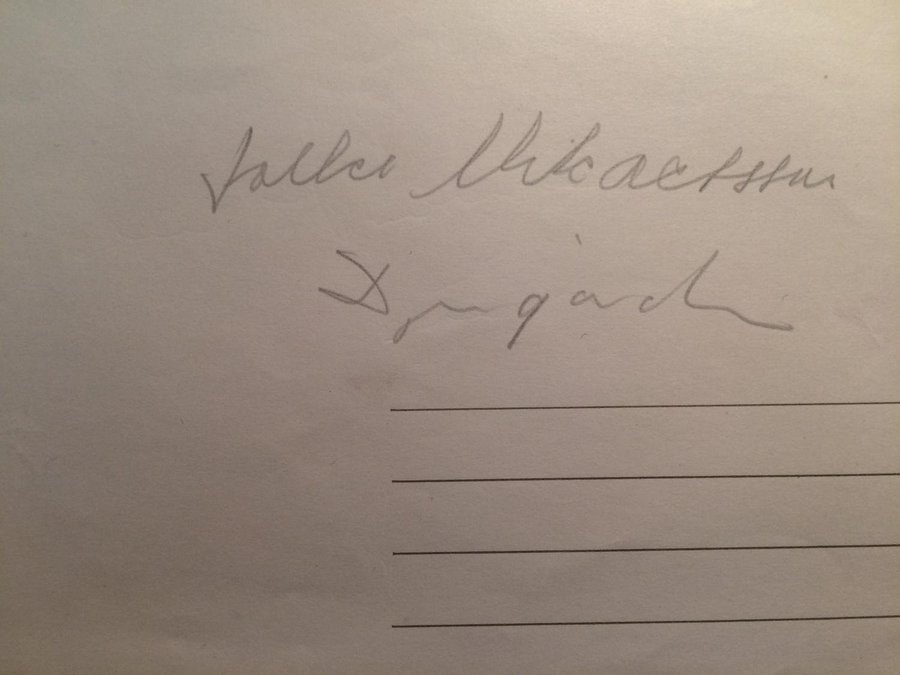 Folke Mikaelsson
Djurgården